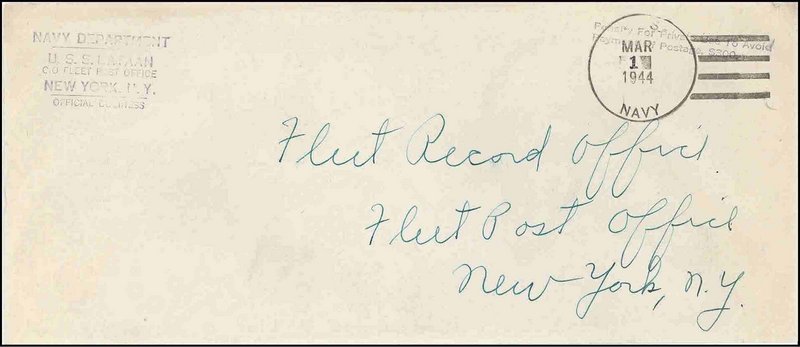 NAVY DEPARTMENT
U. S. S. LAMAN
C/O FLEET POST OFFICE
NEW YORK, N. Y.
OFFICIAL BUSINESS
Penalty For Private Use To Avoid
Payment of Postage, $300
MAR
1
1944
NAVY
Fleet Record Office
Fleet Post Office
New York, N.Y.